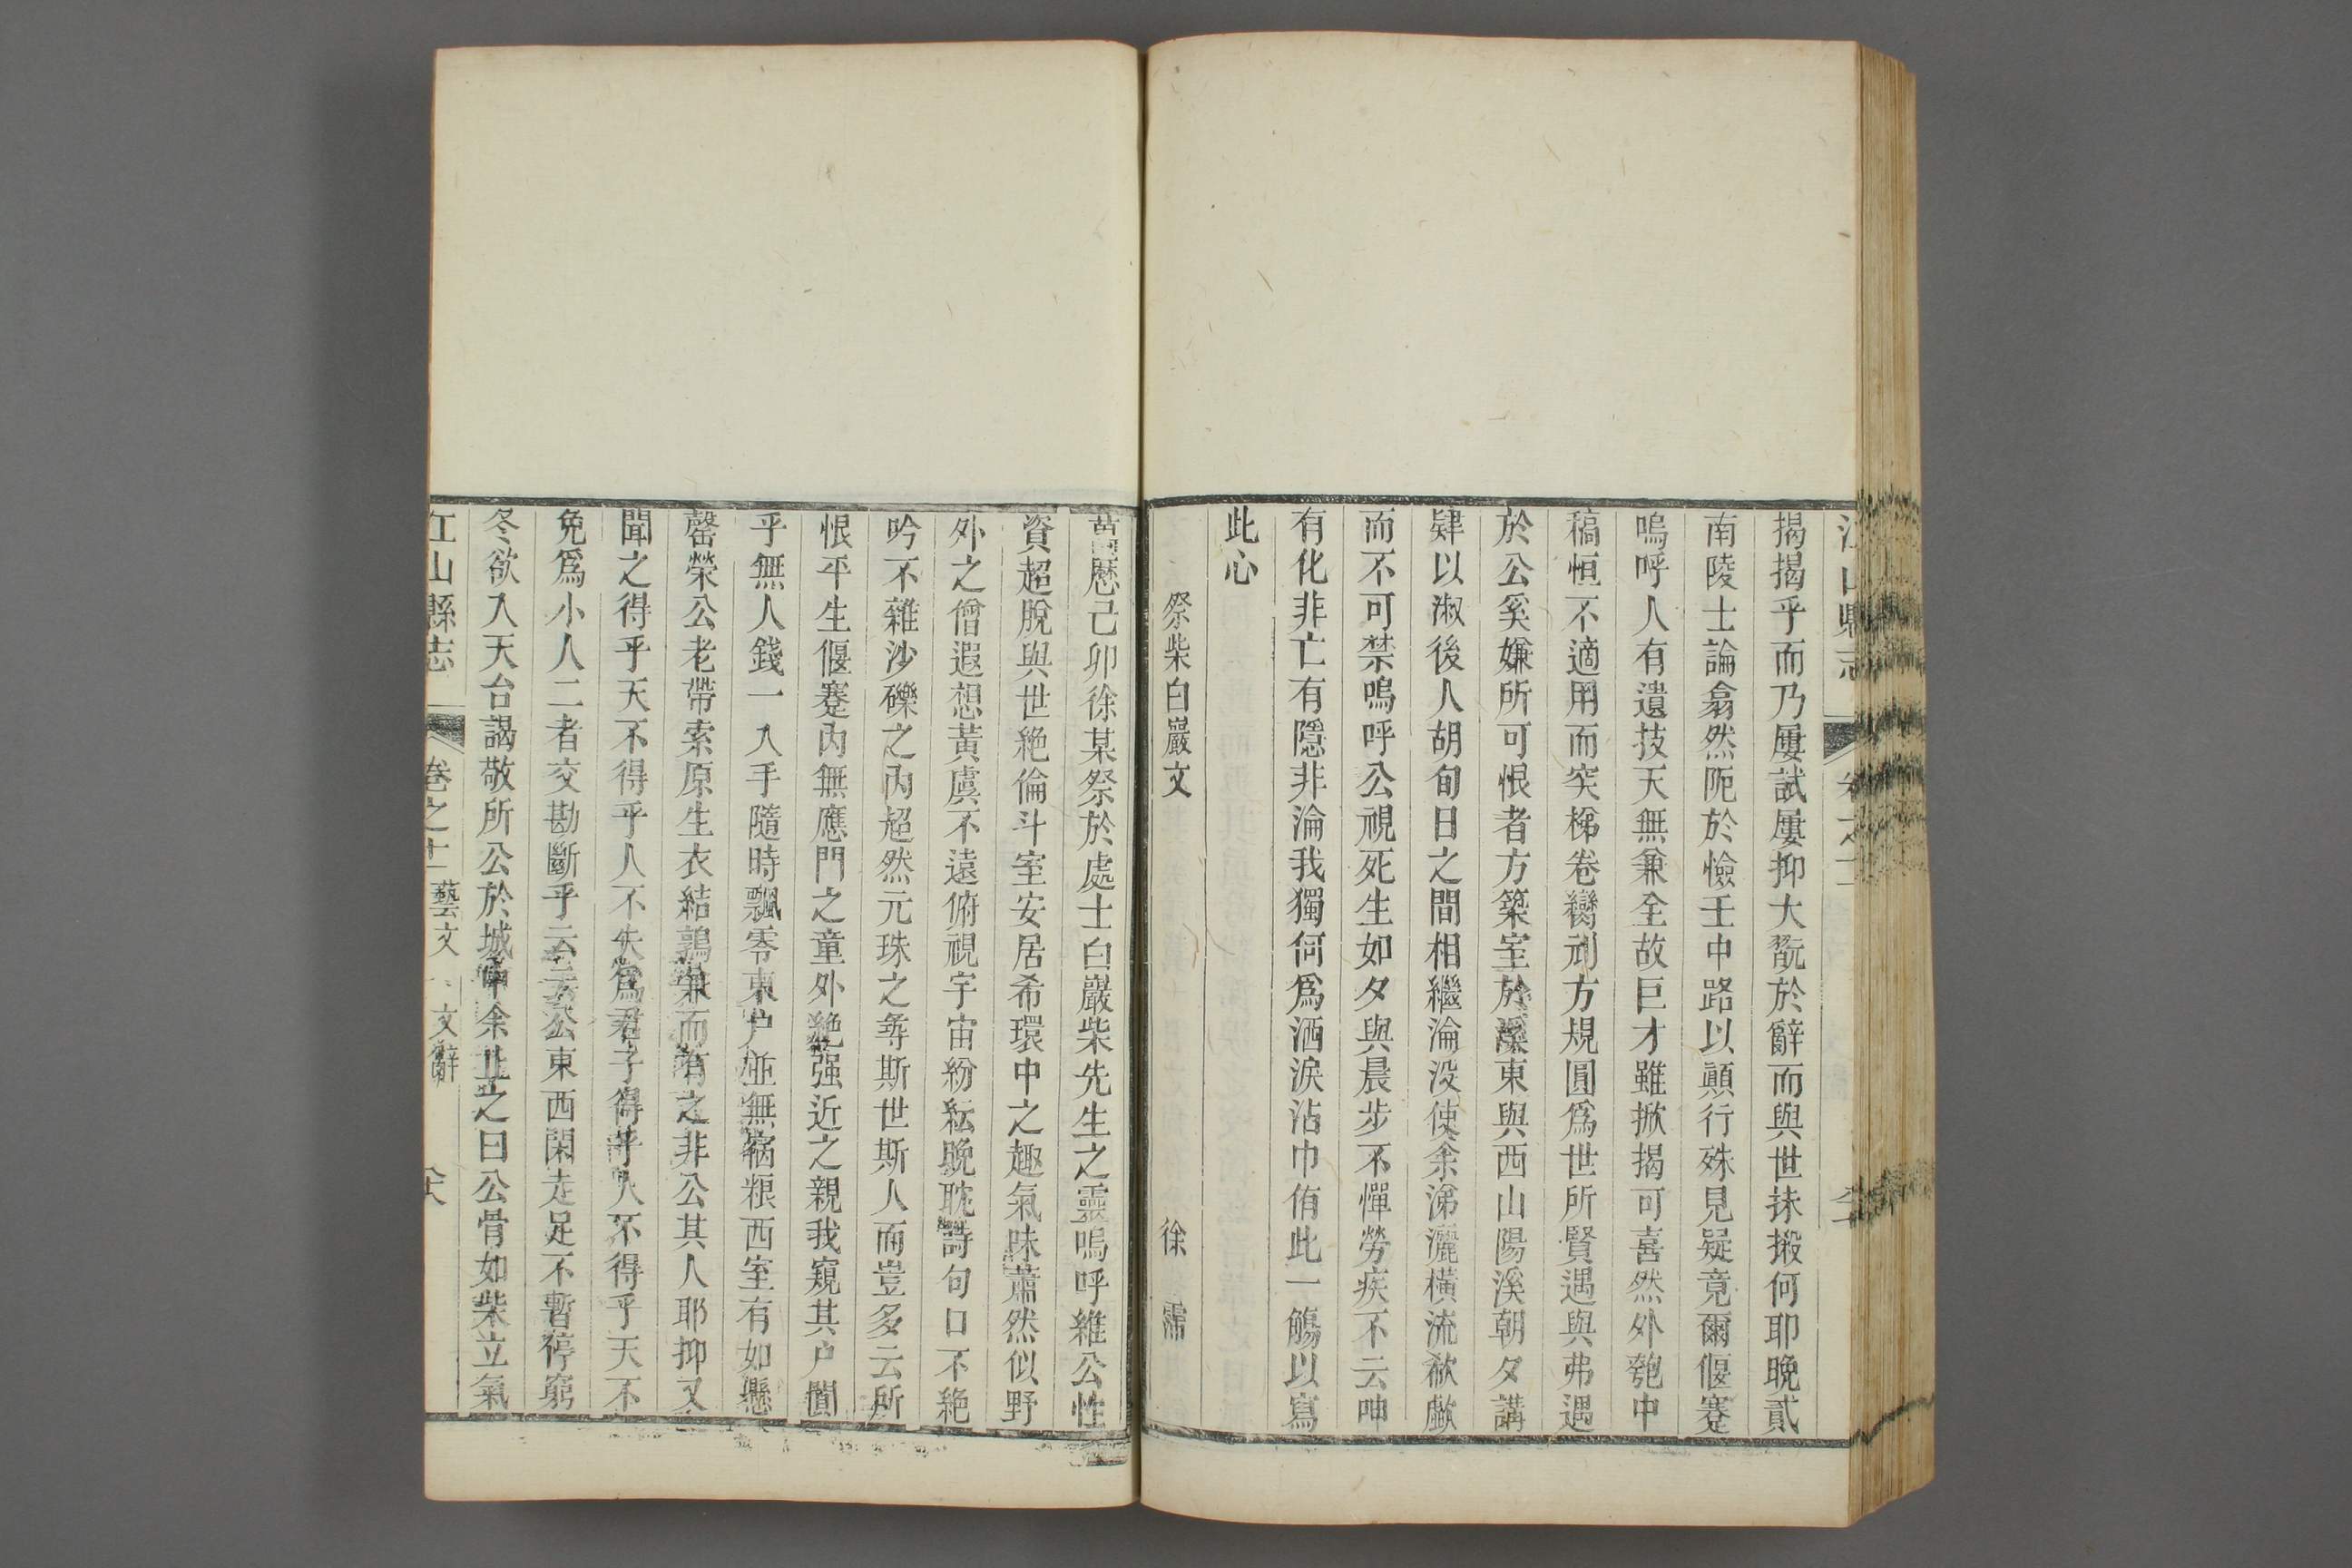 揭揭乎而乃屢試屢抑大翫於辭而與世抹摋何耶晚貳
南陵士論翕然阨於憸壬中路以顚行殊見疑竟爾偃蹇
嗚呼人有遺技天無兼全故巨才雖掀揭可喜然外匏中
稿恒不適用而突梯卷臠刓方規圓爲世所賢遇與弗遇
於公奚嫌所可恨者方築室於溪東與西山陽溪朝夕講
肄以淑後人胡旬日之間相繼淪沒使余涕灑橫流欷歔
而不可禁嗚呼公視死生如夕與晨步不憚勞疾不云呻
有化非亡有隱非淪我獨何爲洒淚沾巾侑此一觴以寫
此心
祭柴白巖文 徐霈
萬歷己卯徐某祭於處士白巖柴先生之靈嗚呼維公性
資超脫與世絶倫斗室安居希環中之趣氣味蕭然似野
外之僧遐想黃虞不遠俯視宇宙紛紜晚耽詩句口不絶
吟不雜沙礫之內超然元珠之尋斯世斯人而豈多云所
恨平生偃蹇內無應門之童外絶强近之親我窺其户闃
乎無人錢一入手隨時飄零東户並無宿粮西室有如懸
罄榮公老帶索原生衣結鶉兼而有之非公其人耶抑又
聞之得乎天不得乎人不失爲君子得乎人不得乎天不
免爲小人二者交勘斷乎云云公東西閑走足不暫停窮
冬欲入天台謁敬所公於城中余止之曰公骨如柴立氣
江山縣志 卷之十一 藝文 文辭